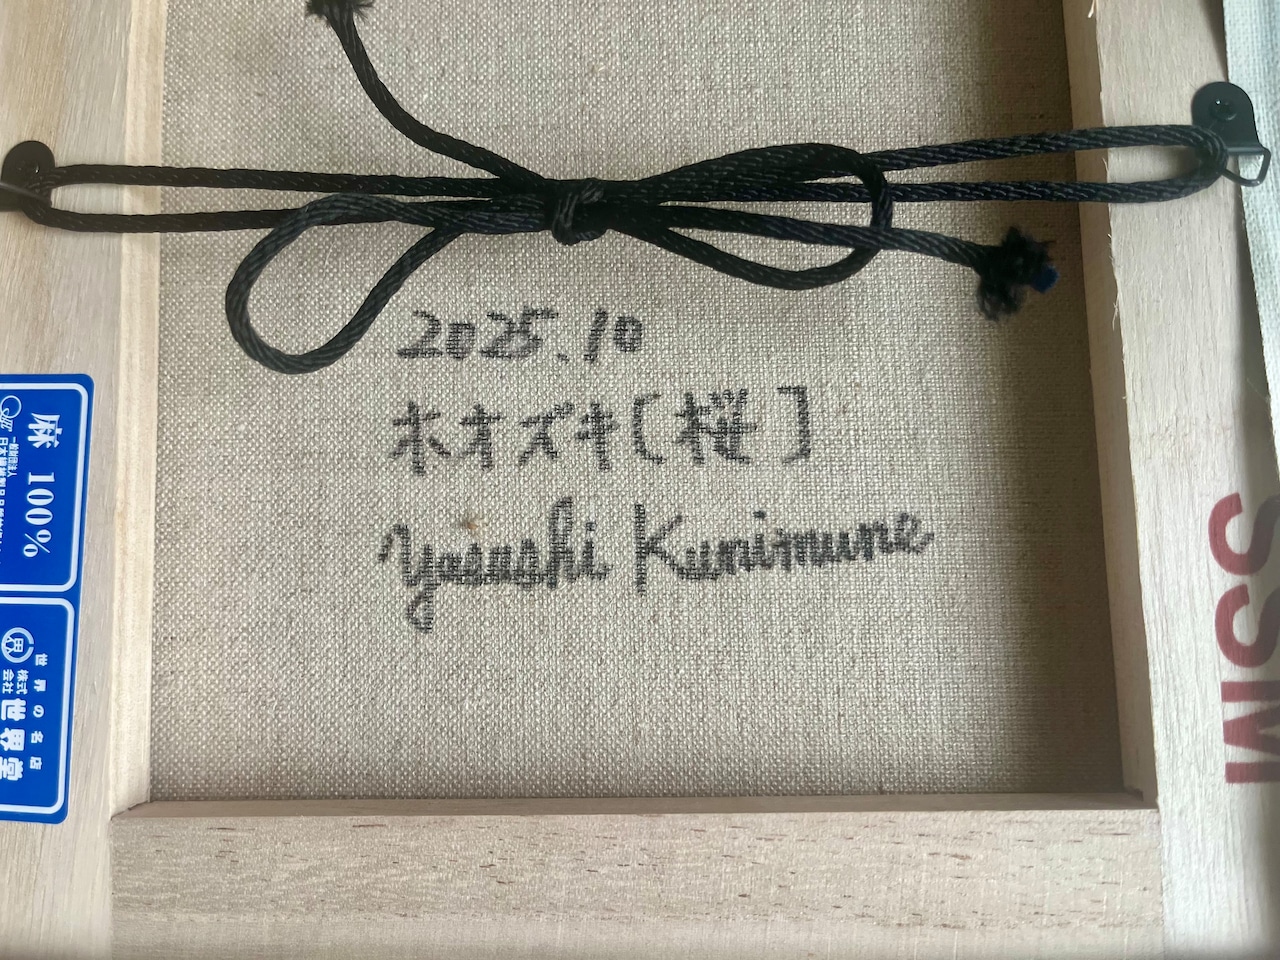 2025.10
ホオズキ〔桜〕
Yasushi Kunimune
麻 100%
一般財団法人
世界の名店
株式会社 世界堂
MISS